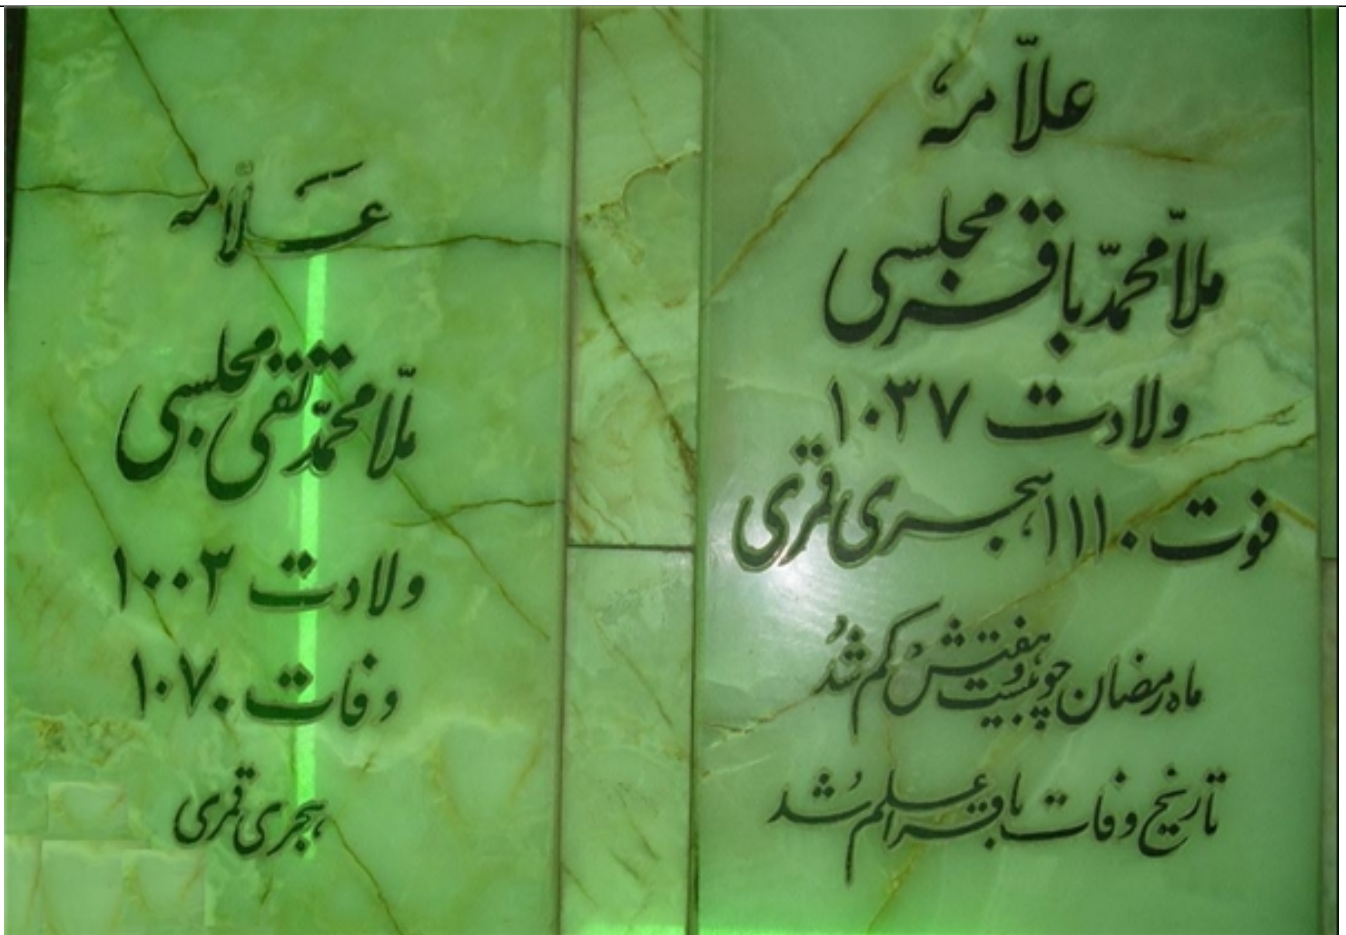 علاّمه
ملاّ محمّد باقر مجلسی
ولادت ۱۰۳۷
فوت ۱۱۱۰ هجری قمری
ماه رمضان چو بیست و هفتش کم شُد
تاریخ وفات باقر اعلم شُد
عَلاّمه
ملاّ محمّد تقی مجلسی
ولادت ۱۰۰۳
وفات ۱۰۷۰
هجری قمری